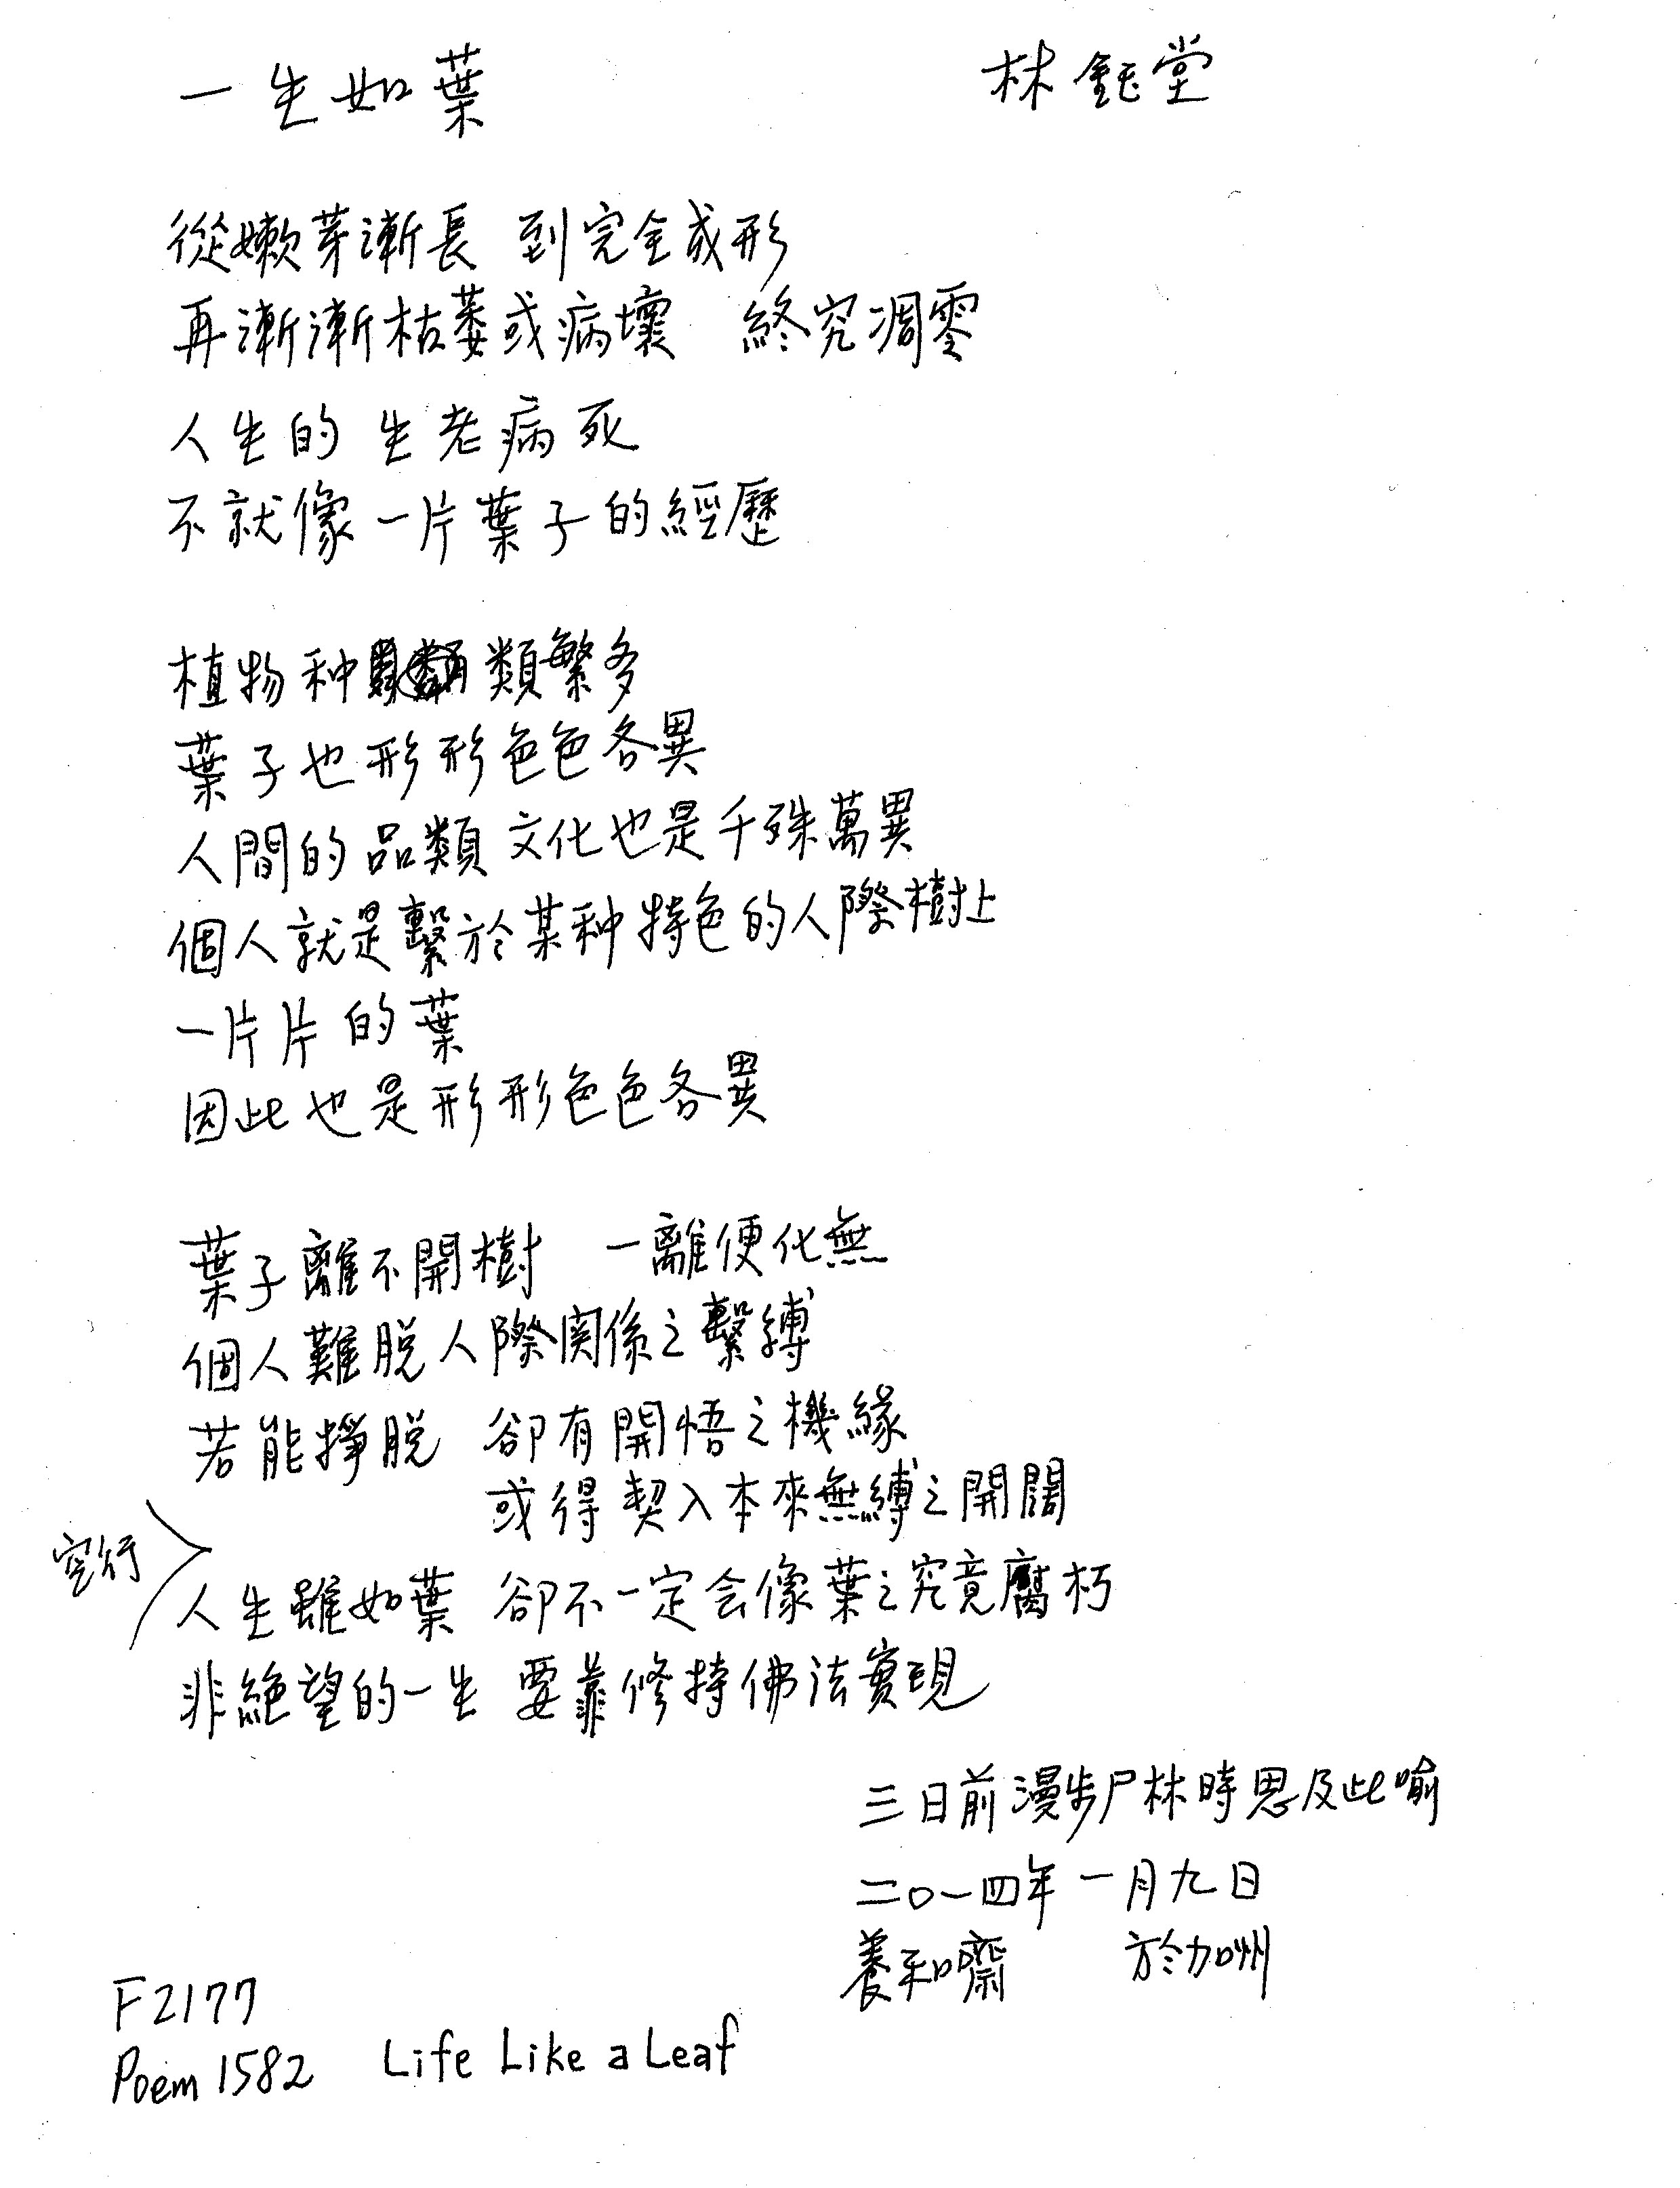 一生如葉 林鈺堂
從嫩芽漸長 到完全成形
再漸漸枯萎或病壞 終究凋零
人生的 生老病死
不就像一片葉子的經歷
植物种類繁多
葉子也形形色色各異
人間的品類文化也是千殊萬異
個人就是繫於某种特色的人際樹上
一片片的葉
因此也是形形色色各異
葉子離不開樹 一離便化無
個人難脫人際関係之繫縛
若能掙脫 卻有開悟之機緣
或得契入本來無縛之開闊
空行
人生雖如葉 卻不一定会像葉之究竟腐朽
非絕望的一生 要靠修持佛法實現
三日前漫步尸林時思及此喻
二〇一四年一月九日
養和齋 於加州
F2177
Poem 1582 Life Like a Leaf